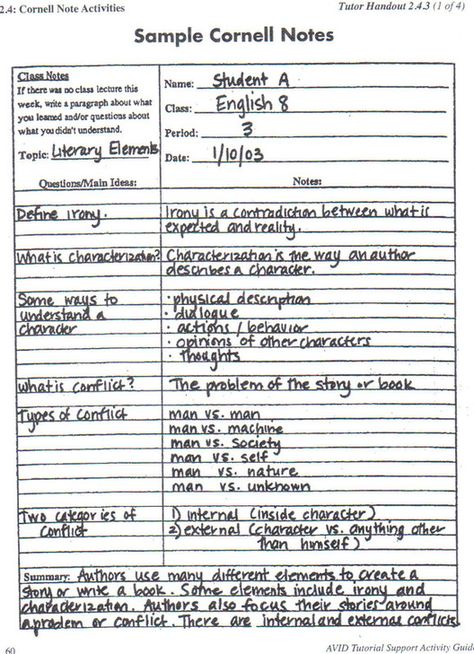 2.4: Cornell Note Activities Tutor Handout 2.4.3 (1 of 4)
Sample Cornell Notes
Class Notes
If there was no class lecture this
week, write a paragraph about what
you learned and/or questions about
what you didn't understand.
Topic: Literary Elements
Name: Student A
Class: English 8
Period: 3
Date: 1/10/03
Questions/Main Ideas: Notes:
Define irony. Irony is a contradiction between what is
expected and reality.
What is characterization? Characterization is the way an author
describes a character.
Some ways to · physical description
understand a · dialogue
character · actions / behavior
· opinions of other characters
· thoughts
What is conflict? The problem of the story or book
Types of conflict man vs. man
man vs. machine
man vs. society
man vs. self
man vs. nature
man vs. unknown
Two categories of 1) internal (inside character)
conflict 2) external (character vs. anything other
than himself)
Summary: Authors use many different elements to create a
story or write a book. Some elements include irony and
characterization. Authors also focus their stories around
a problem or conflict. There are internal and external conflicts.
60 AVID Tutorial Support Activity Guid